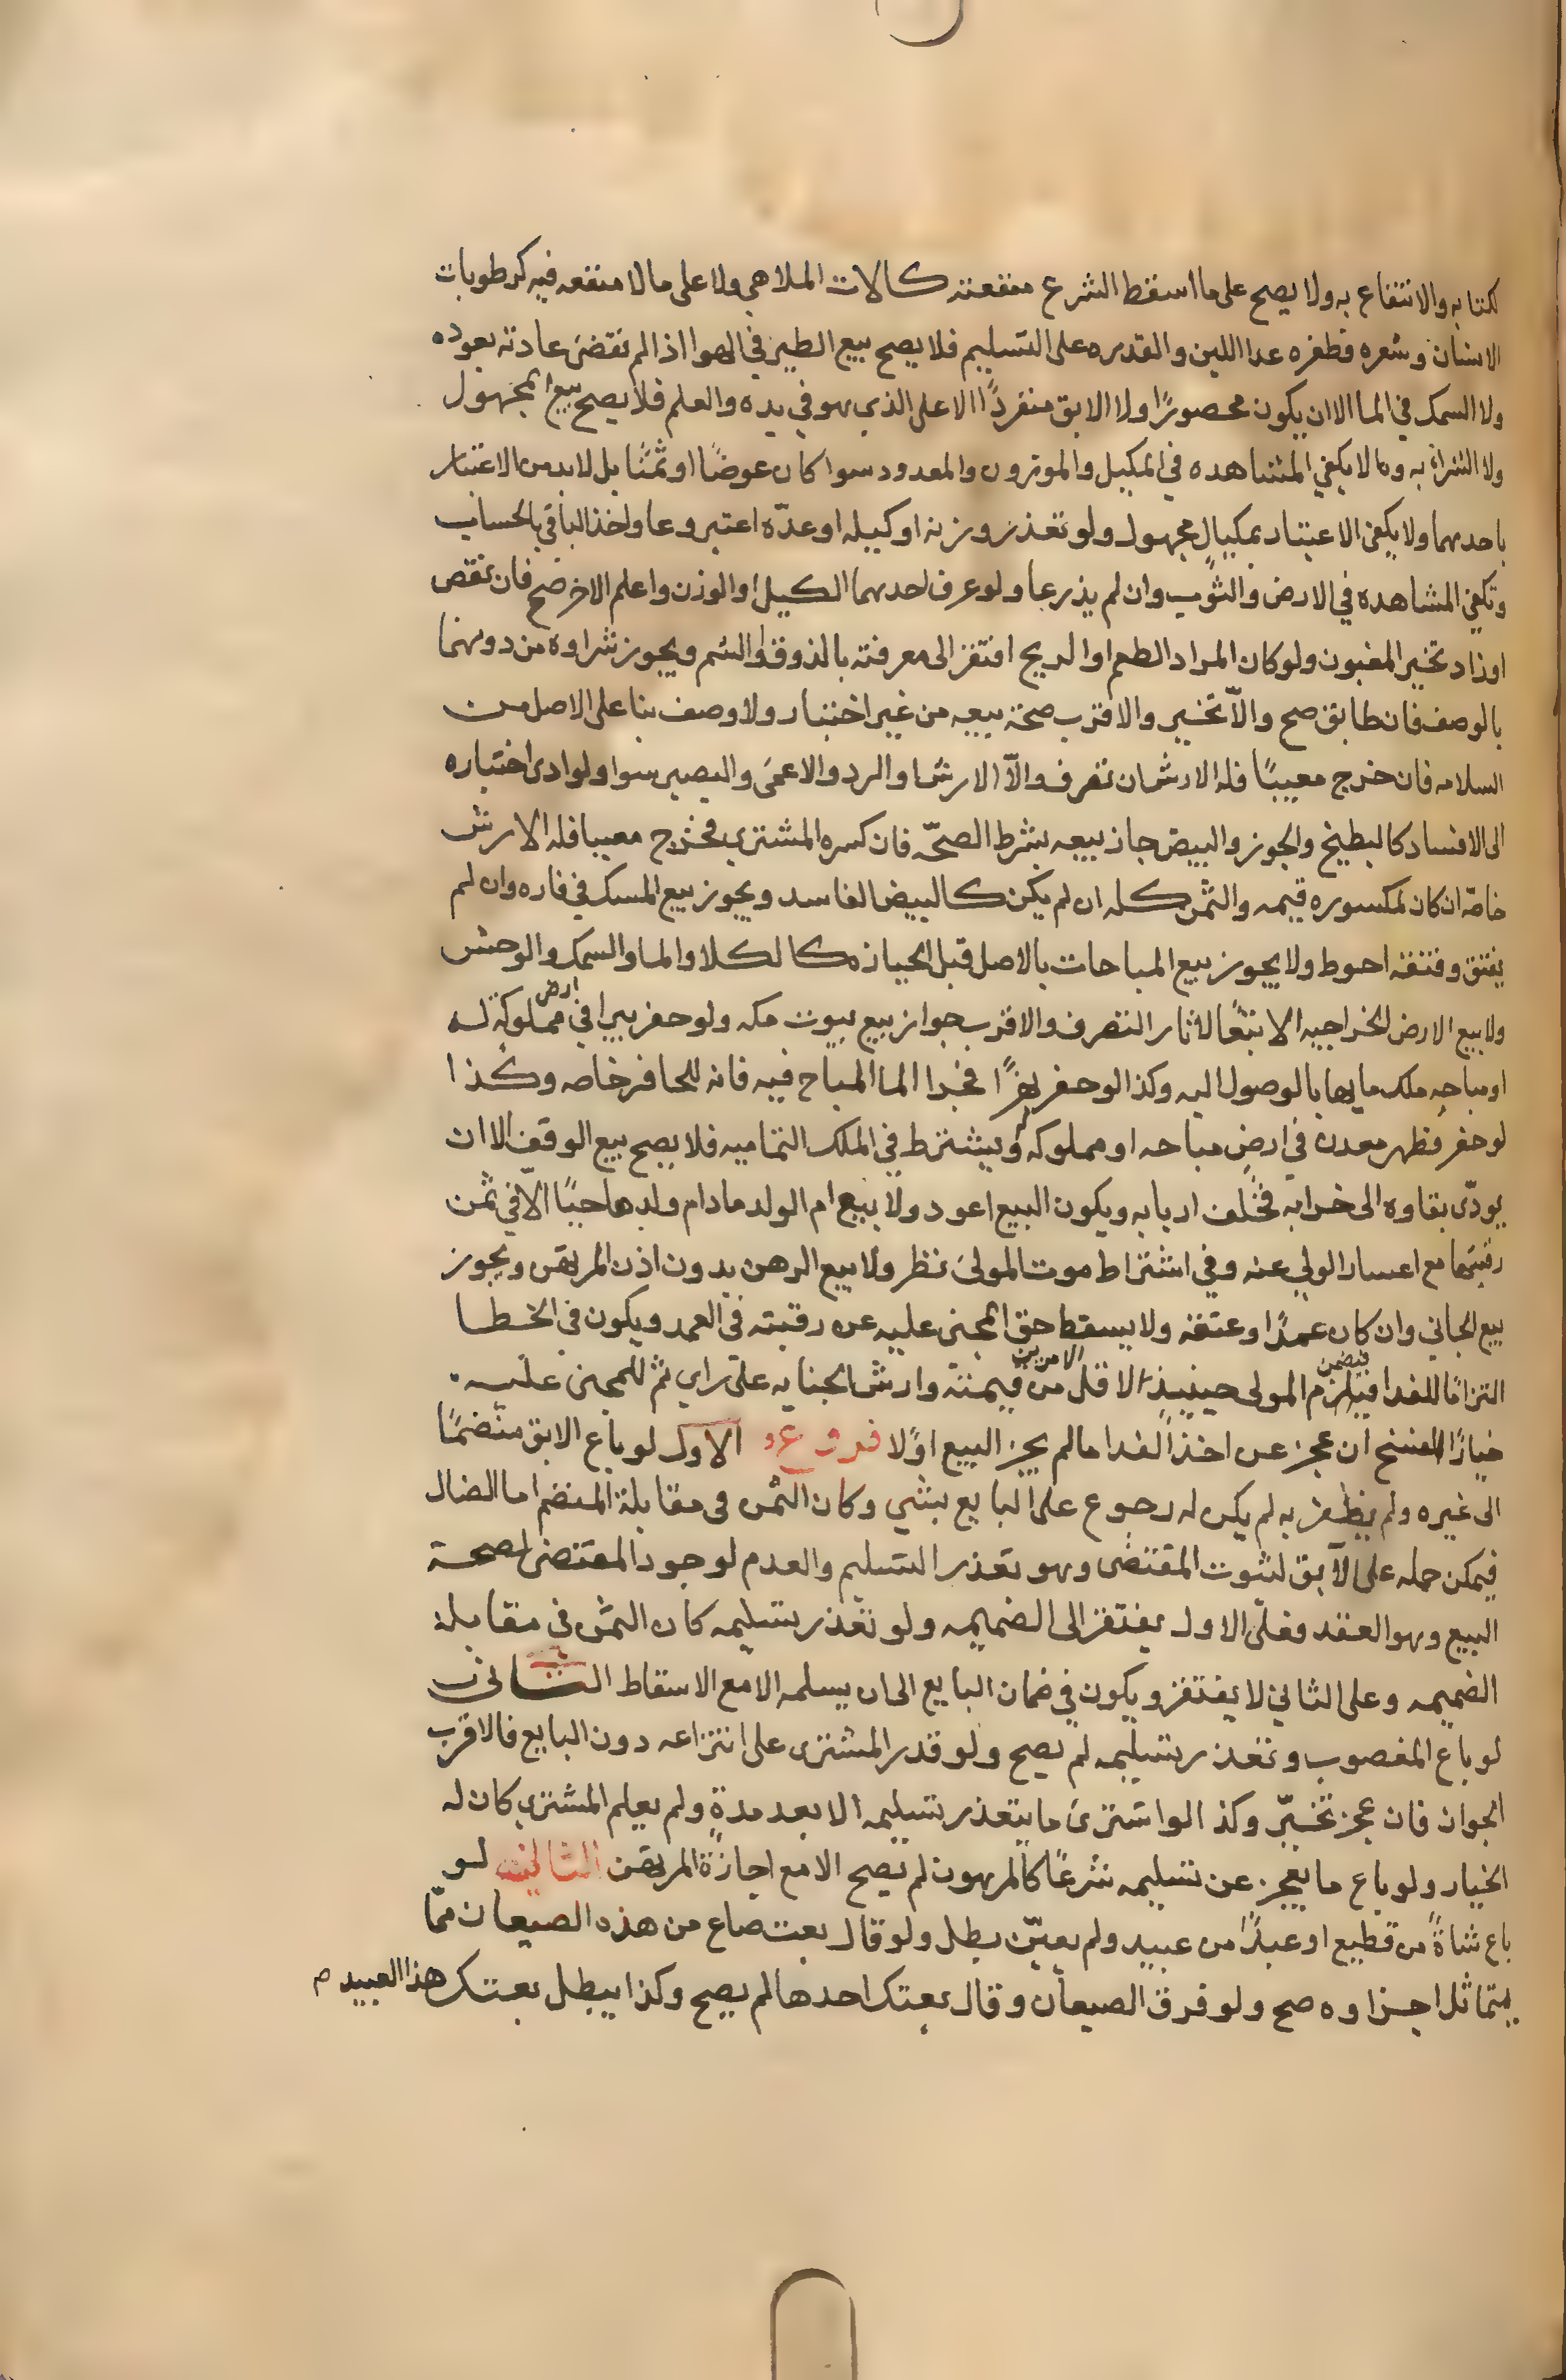 كتابه والانتفاع به ولا يصح على ما اسقط الشرع منفعته كالات الملاهي ولا على ما لا منفعه فيه كرطوبات
الانسان وشعره وظفره عدا اللبن والقدره على التسليم فلا يصح بيع الطير في الهوا اذا لم تقضى عادته بعوده
ولا السمك في الما الا ان يكون محصورًا ولا الابق منفردًا الا على الذي هو في يده والعلم فلا يصح بيع المجهول
ولا الشراء به و لا يكفي المشاهده في المكيل والموزون والمعدود سوا كان عوضًا او ثمنًا بل لا بد من الاعتبار
باحدهما ولا يكفي الاعتبار بمكيال مجهول ولو تعذر وزنه او كيله او عدّه اعتبر وعا واخذ الباقي بالحساب
وتكفي المشاهده في الارض والثوب وان لم يذرعا ولو عرف احدهما الكيل او الوزن واعلم الاخر صح فان نقص
او زاد تخير المغبون ولو كان المراد الطعم او الريح افتقر الى معرفته بالذوق او الشم ويجوز شراوه من دونهما
بالوصف فان طابق صح والاّ تخير والاقرب صحة بيعه من غير اختبار ولا وصف بنا على الاصل من
السلامه فان خرج معيبًا فله الارش ان تصرف والاّ الارش او الرد والاعمى والبصير سوا ولو ادى اختباره
الى الافساد كالبطيخ والجوز والبيض جاز بيعه بشرط الصحّه فان كسره المشتري فخرج معيبا فله الارش
خاصّه ان كان لمكسوره قيمه والثمن كله ان لم يكن كالبيض الفاسد ويجوز بيع المسك في فاره وان لم
يفتق وفتقه احوط ولا يجوز بيع المباحات بالاصل قبل الحيازه كالكلا والما والسمك والوحش
ولا بيع الارض الخراجيه الا تبعًا لاثار التصرف والاقرب جواز بيع بيوت مكه ولو حفر بيرا في ارض مملوكة له
او مباحه ملك ماءها بالوصول اليه وكذا لو حفر نهرًا فجرا الما المباح فيه فانه للحافر خاصه وكذا
لو حفر فظهر معدن في ارض مباحه او مملوكه له ويشترط في الملك التماميه فلا يصح بيع الوقف الا ان
يودّى بقاوه الى خرابه فخلف اربابه ويكون البيع اعود ولا بيع ام الولد مادام ولدها حيًا الاّ في ثمن
رقبتها مع اعسار الولي عنه وفي اشتراط موت المولى نظر ولا بيع الرهن بدون اذن المرتهن ويجوز
بيع الجاني وان كان عمدًا وعتقه ولا يسقط حق المجنى عليه عن رقبته في العمد ويكون في الخطا
التزامًا للفدا فيلزم فيضمن المولى حينيذ الاقل الامرين من قيمته وارش الجنايه على راي ثم للمجنى عليه
خيارًا الفسخ ان عجز عن اخذ الفدا ما لم يجز البيع اوّلا فروع الاول لو باع الابق منضمًا
الى غيره ولم يظفر به لم يكن له رجوع على البايع بشي وكان الثمن في مقابلة المنضم اما الضال
فيمكن حمله على الآبق لثبوت المقتضى وهو تعذر التسليم والعدم لوجود المقتضى لصحة
البيع وهو العقد فعلى الاول يفتقر الى الضميمه ولو تعذر تسليمه كان الثمن في مقابلة
الضميمه وعلى الثاني لا يفتقر ويكون في ضمان البايع الى ان يسلمه الا مع الاسقاط الثاني
لو باع المغصوب وتعذر تسليمه لم يصح ولو قدر المشترى على انتزاعه دون البايع فالاقرب
الجواز فان عجز تخيّر وكذا لو اشترى ما يتعذر تسليمه الا بعد مدة ولم يعلم المشتري كان له
الخيار ولو باع ما يعجز عن تسليمه شرعًا كالمرهون لم يصح الا مع اجازة المرتهن الثالث لو
باع شاةً من قطيع او عبدًا من عبيد ولم يعيّن بطل ولو قال بعت صاع من هذه الصيعان ممّا
يتماثل اجزاوه صح ولو فرق الصيعان وقال بعتك احدها لم يصح وكذا يبطل بعتك هذا العبيد م